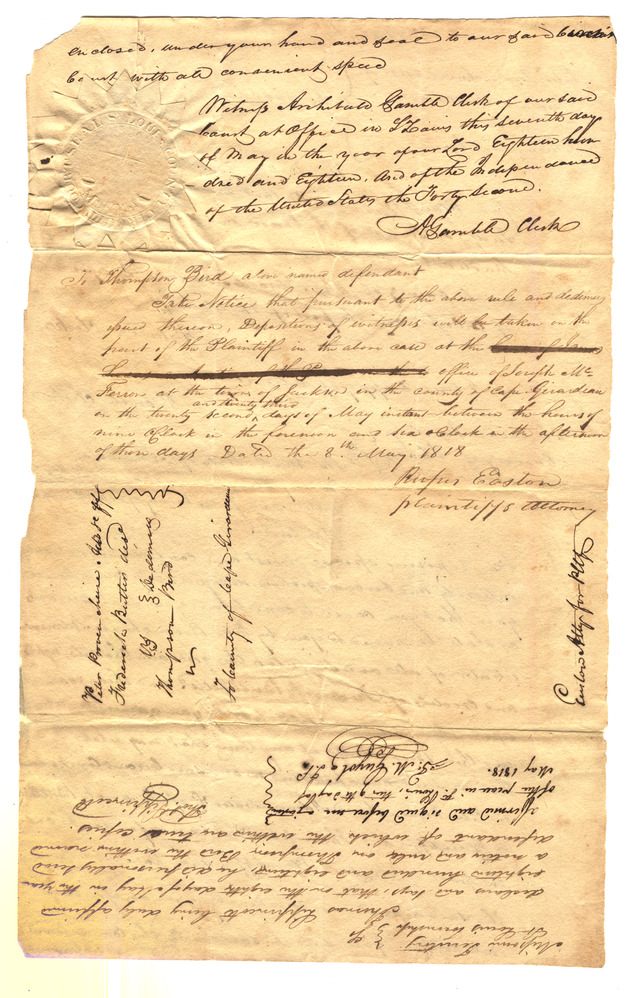 enclosed, under your hand and seal to our said Circuit
Court with all convenient speed
Witness Archibald Gamble Clerk of our said
court at Office in St Louis this seventh day
of May in the year of our Lord Eighteen hun
dred and Eighteen, and of the Independence
of the United States the Forty Second.
A Gamble Clerk
To Thompson Bird above named defendant
Take Notice that pursuant to the above rule and dedimus
issued thereon, Depositions of witnesses will be taken on the
part of the Plaintiff in the above case at the
office of Joseph Mc
Ferron at the town of Jackson in the county of Cape Girardeau
and twenty third
on the twenty second days of May instant between the hours of
nine OClock in the forenoon and six oClock in the afternoon
of those days Dated the 8th May 1818
Rufus Easton
Plaintiffs Attorney
Peter Provenchere
Frederick Bates
VS } Dedimus
Thompson Bird
To County of Cape Girardeau
Easton Atty for Pltf
Missouri Territory
St Louis Township } SS
Thomas Lippincott being duly affirmed
declares and says, that on the eighth day of May in the year
eighteen hundred and eighteen, he did personally serve
a notice and rule on Thompson Bird the within named
defendant of which the within are true copies.
Tho. Lippincott
affirmed and signed before me a justice
of the peace in St Louis, this 9th day of
May 1818.
F. M. Guyol J. P.